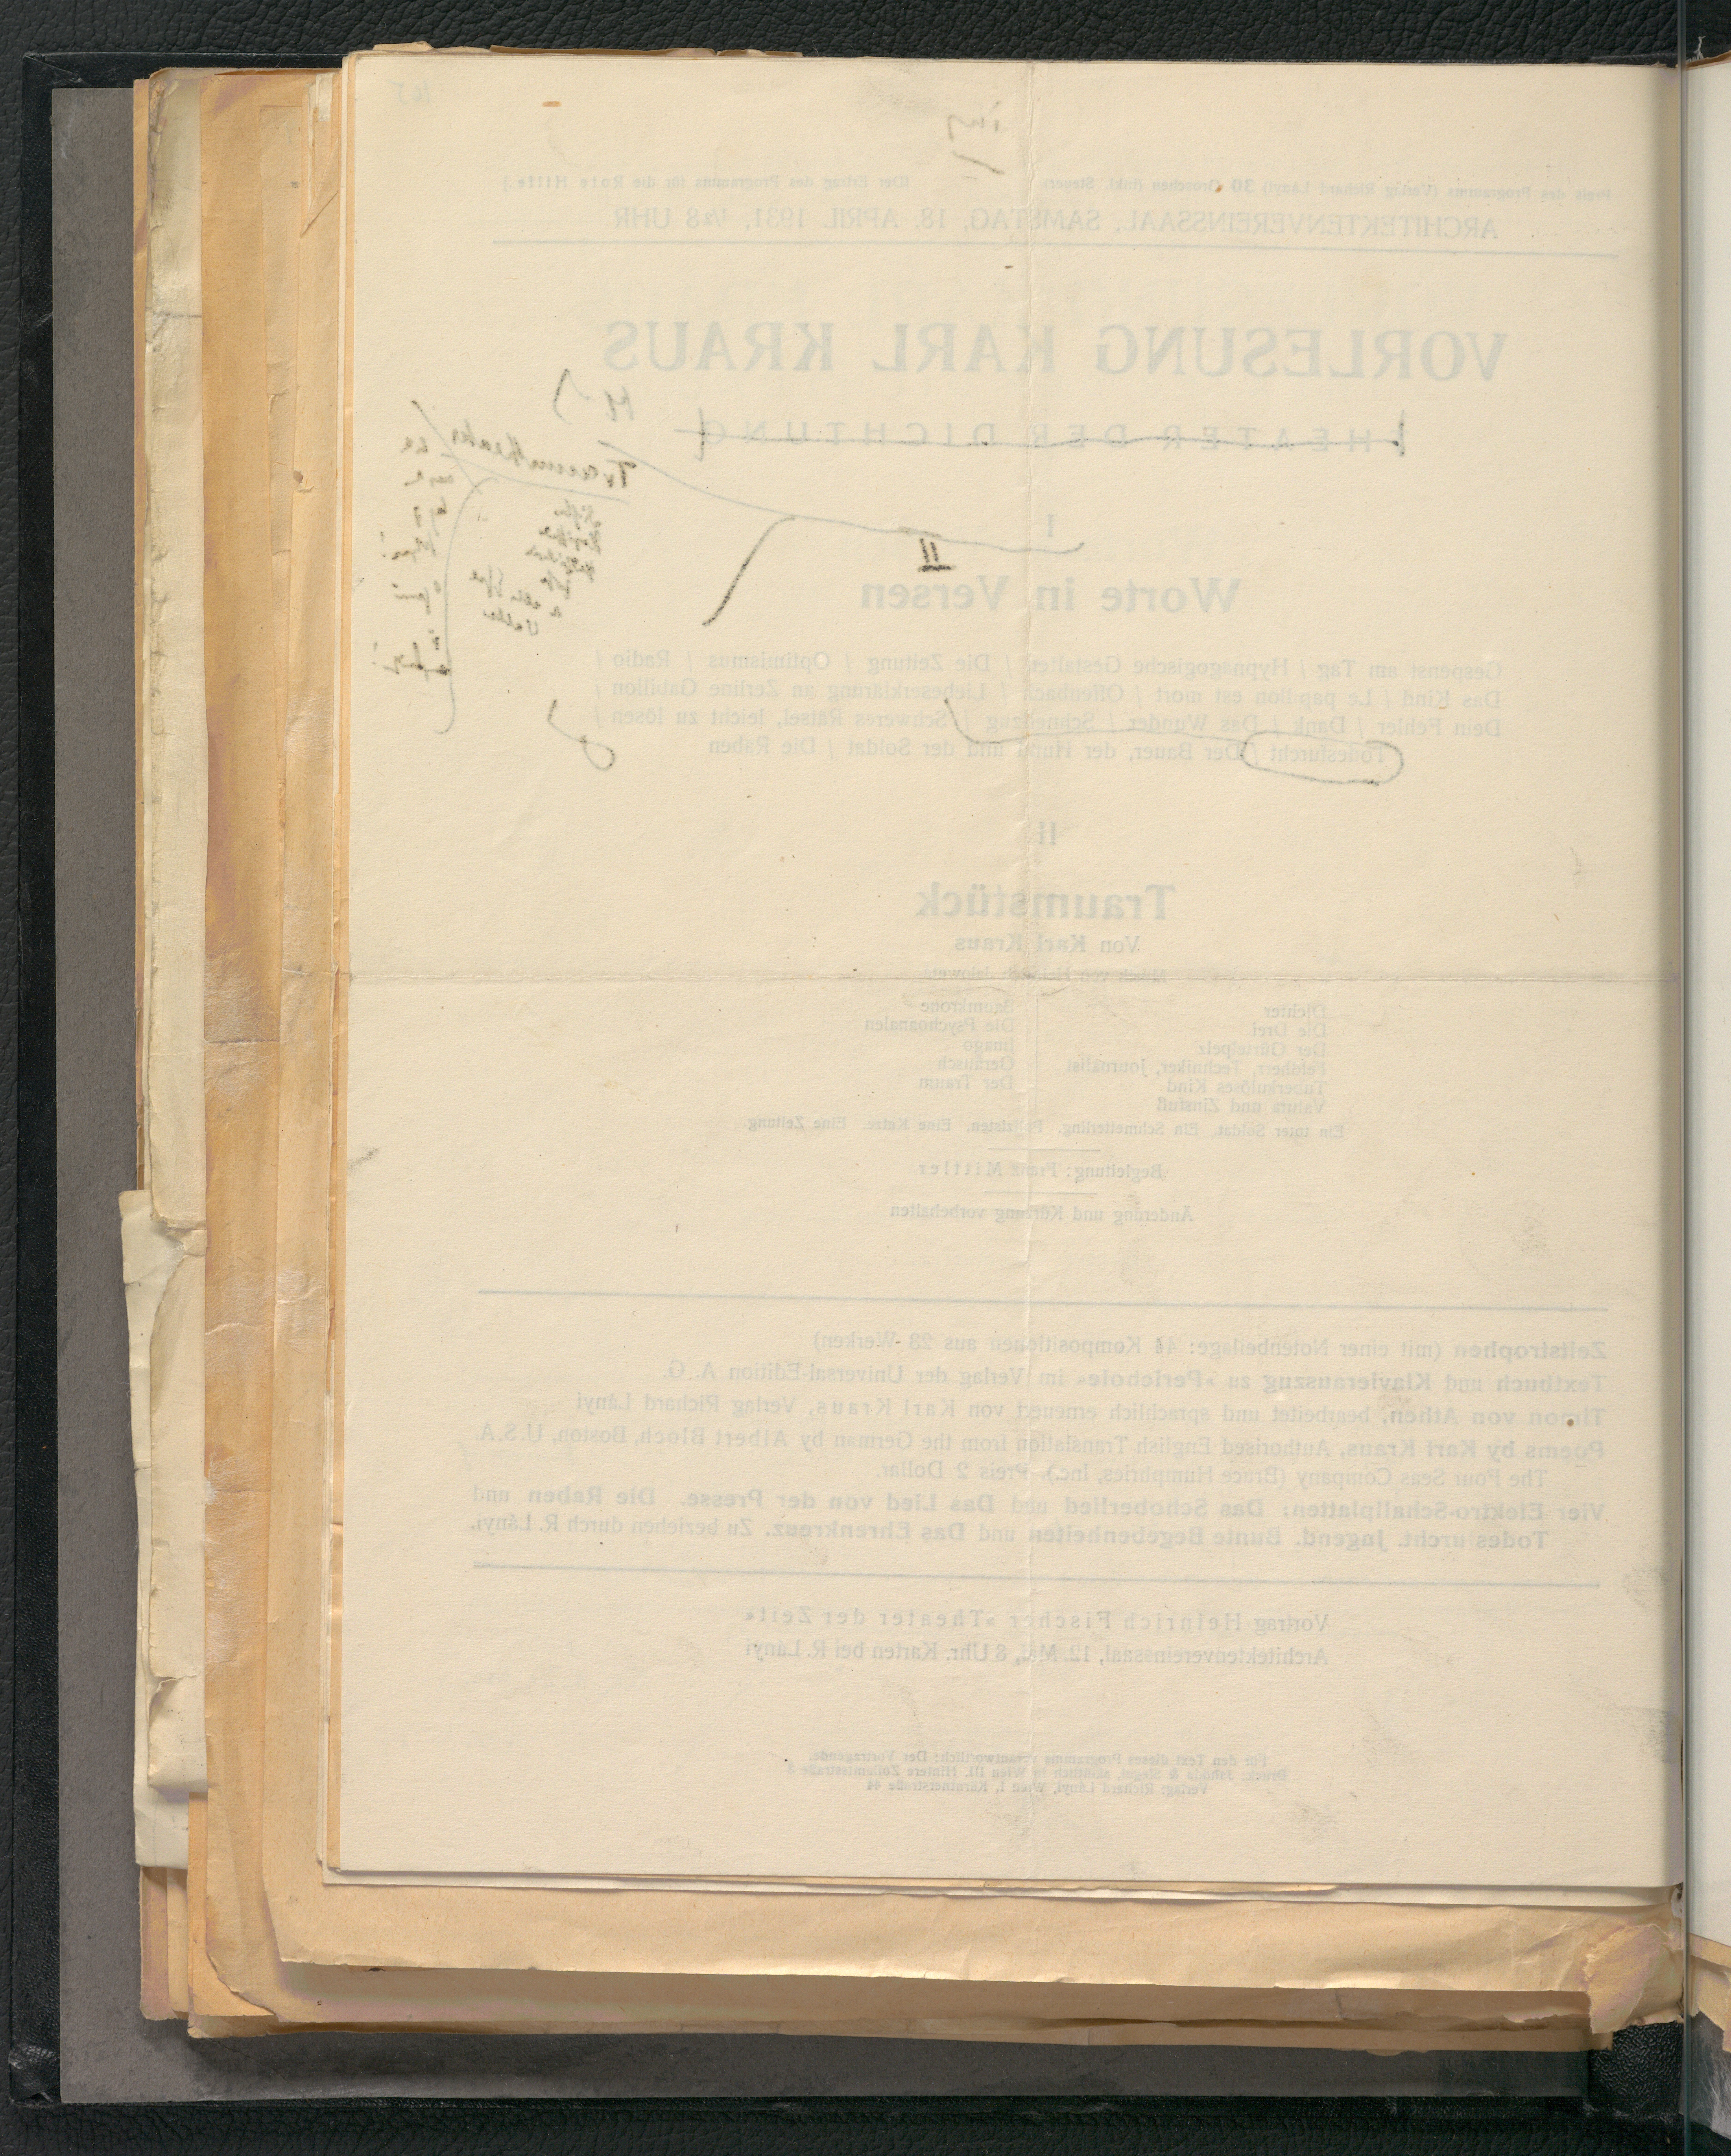 Preis des Programms (Verlag Richard Lányi) 30 Groschen (inkl. Steuer) [Der Ertrag des Programms für die Rote Hilfe.]
ARCHITEKTENVEREINSSAAL, SAMSTAG, 18. APRIL 1931, ½8 UHR
VORLESUNG KARL KRAUS
THEATER DER DICHTUNG
I
II
Worte in Versen
Gespenst am Tag / Hypnagogische Gestalten / Die Zeitung / Optimismus / Radio /
Das Kind / Le papillon est mort / Offenbach / Liebeserklärung an Zerline Gabillon /
Dein Fehler / Dank / Das Wunder / Schnellzug / Schweres Rätsel, leicht zu lösen /
Todesfurcht / Der Bauer, der Hund und der Soldat / Die Raben
II
Traumstück
Von Karl Kraus
Musik von Heinrich Jalowetz
Dichter
Die Drei
Der Gürtelpelz
Feldherr, Techniker, Journalist
Tuberkulöses Kind
Valuta und Zinsfuß
Baumkrone
Die Psychoanalen
Imago
Geräusch
Der Traum
Ein toter Soldat. Ein Schmetterling. Passisten. Eine Katze. Eine Zeitung
Begleitung: Franz Mittler
Änderung und Kürzung vorbehalten
Zeitstrophen (mit einer Notenbeilage: 44 Kompositionen aus 23 Werken)
Textbuch und Klavierauszug zu »Perichole« im Verlag der Universal-Edition A. G.
Timon von Athen, bearbeitet und sprachlich erneuert von Karl Kraus, Verlag Richard Lányi
Poems by Karl Kraus, Authorised English Translation from the German by Albert Bloch, Boston, U.S.A.
The Four Seas Company (Bruce Humphries, Inc.), Preis 2 Dollar.
Vier Elektro-Schallplatten: Das Schoberlied und Das Lied von der Presse. Die Raben und
Todesfurcht. Jugend. Bunte Begebenheiten und Das Ehrenkreuz. Zu beziehen durch R. Lányi.
Vortrag Heinrich Fischer »Theater der Zeit«
Architektenvereinssaal, 12. Mai, 8 Uhr. Karten bei R. Lányi
Für den Text dieses Programms verantwortlich: Der Vortragende.
Druck: Jahoda & Siegel, sämtlich in Wien III, Hintere Zollamtsstraße 3
Verlag: Richard Lányi, Wien I, Kärntnerstraße 44